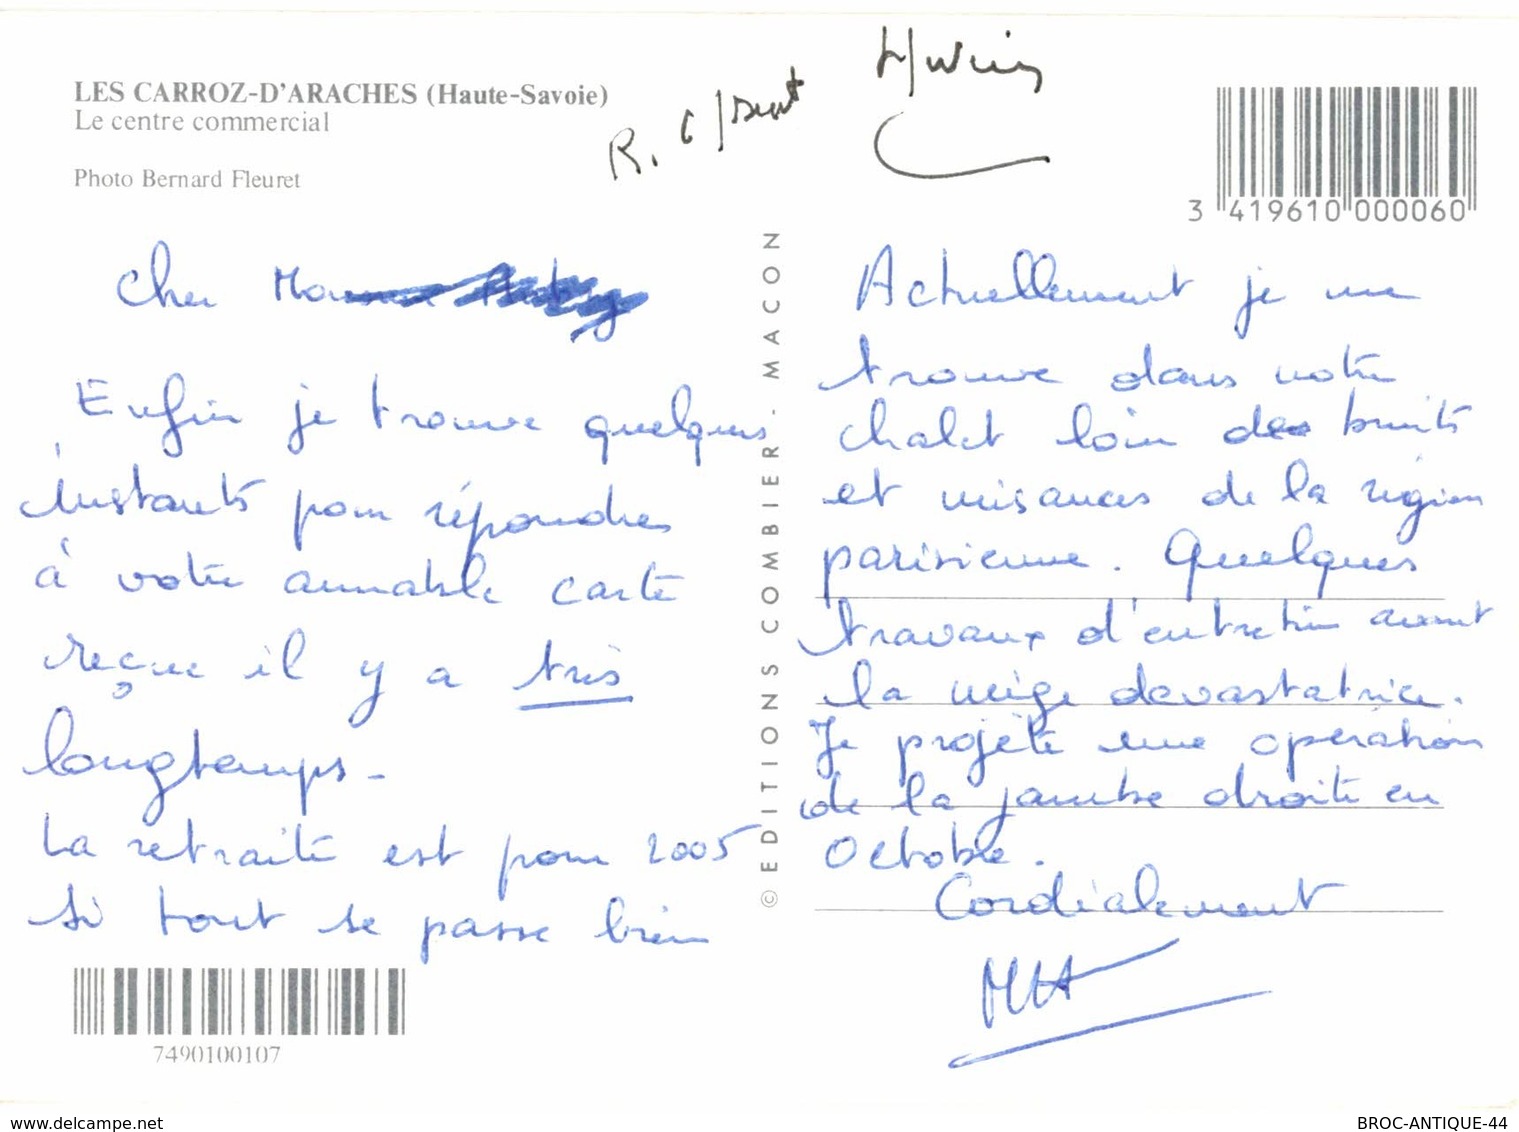 LES CARROZ-D'ARACHES (Haute-Savoie)
Le centre commercial
Photo Bernard Fleuret
R.
3 419610 000060
Cher
Enfin je trouve quelques
instants pour répondre
à votre aimable carte
reçue il y a très
longtemps -
La retraite est pour 2005
si tout se passe bien
7490100107
© EDITIONS COMBIER - MACON
Actuellement je me
trouve dans notre
chalet loin des bruits
et nuisances de la région
parisienne. Quelques
travaux d'entretien avant
la neige devastatrice.
Je projète une opération
de la jambe droite en
Octobre.
Cordialement
www.delcampe.net
BROC-ANTIQUE-44